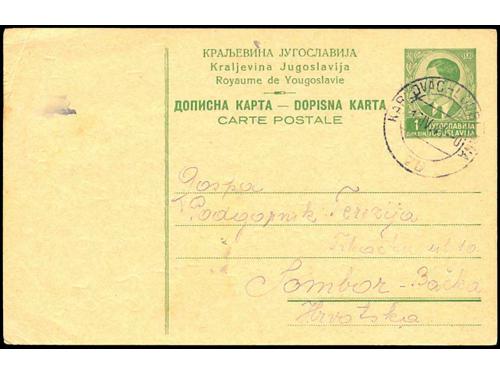 КРАЉЕВИНА ЈУГОСЛАВИЈА
Kraljevina Jugoslavija
Royaume de Yougoslavie
ДОПИСНА КАРТА — DOPISNA KARTA
CARTE POSTALE
ЈУГОСЛАВИЈА
JUGOSLAVIJA
Gospa
Podgornik Terezija
Sombor - Bačka
Hrvatska